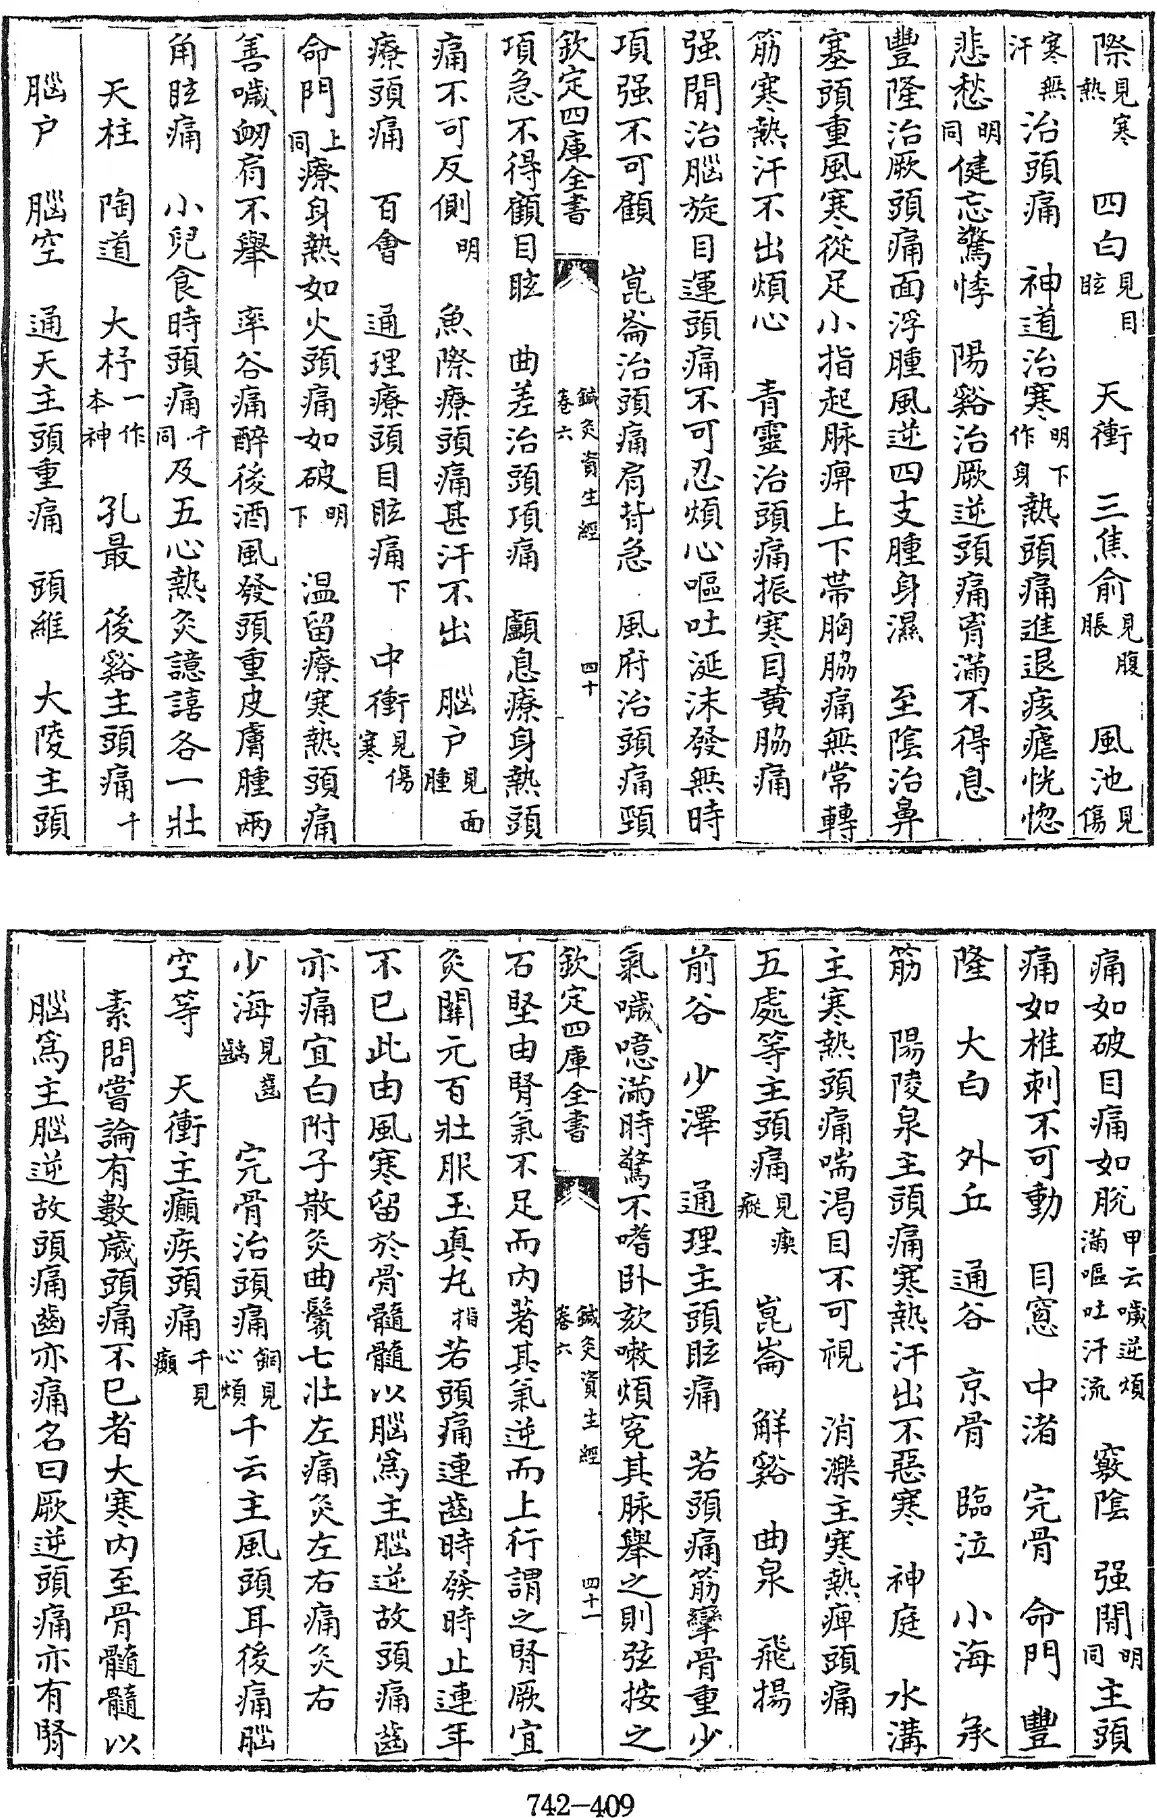 際見寒熱 四白見目眩 天衝 三焦俞見腹脹 風池見傷
寒無汗治頭痛 神道治寒明下作身熱頭痛進退痎瘧恍惚
悲愁明同健忘驚悸 陽谿治厥逆頭痛胷滿不得息
豐隆治厥頭痛面浮腫風逆四支腫身濕 至陰治鼻
塞頭重風寒從足小指起脉痹上下帶胸脇痛無常轉
筋寒熱汗不出煩心 青靈治頭痛振寒目黄脇痛
强間治腦旋目運頭痛不可忍煩心嘔吐涎沫發無時
項强不可顧 崑崙治頭痛肩背急 風府治頭痛頸
欽定四庫全書 鍼灸資生經卷六 四十
項急不得顧目眩 曲差治頭項痛 顱息療身熱頭
痛不可反側明 魚際療頭痛甚汗不出 腦户見面腫
療頭痛 百會 通理療頭目眩痛下 中衝見傷寒
命門上同療身熱如火頭痛如破明下 温留療寒熱頭痛
善噦衂肩不舉 率谷痛醉後酒風發頭重皮膚腫兩
角眩痛 小兒食時頭痛千同及五心熱灸譩譆各一壯
天柱 陶道 大杼一作本神 孔最 後谿主頭痛千
腦户 腦空 通天主頭重痛 頭維 大陵主頭
痛如破目痛如脫甲云噦逆煩滿嘔吐汗流 竅陰 强間明同主頭
痛如椎刺不可動 目窻 中渚 完骨 命門 豐
隆 大白 外丘 通谷 京骨 臨泣 小海 承
筋 陽陵泉主頭痛寒熱汗出不惡寒 神庭 水溝
主寒熱頭痛喘渴目不可視 消濼主寒熱痺頭痛
五處等主頭痛見瘈瘲 崑崙 解谿 曲泉 飛揚
前谷 少澤 通理主頭眩痛 若頭痛筋攣骨重少
氣噦噫滿時驚不嗜卧欬嗽煩冤其脉舉之則弦按之
欽定四庫全書 鍼灸資生經卷六 四十一
石堅由腎氣不足而内著其氣逆而上行謂之腎厥宜
灸關元百壯服玉真丸指若頭痛連齒時發時止連年
不已此由風寒留於骨髓髓以腦爲主腦逆故頭痛齒
亦痛宜白附子散灸曲鬢七壯左痛灸左右痛灸右
少海見齒齲 完骨治頭痛銅見心煩千云主風頭耳後痛腦
空等 天衝主癲疾頭痛千見癲
素問嘗論有數歲頭痛不已者大寒内至骨髓髓以
腦爲主腦逆故頭痛齒亦痛名曰厥逆頭痛亦有腎
742-409